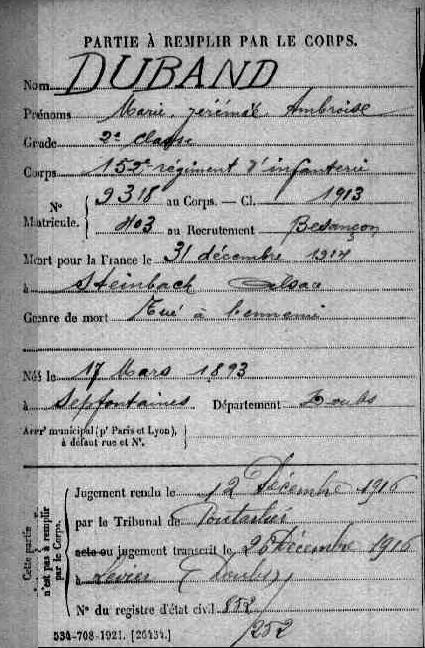 PARTIE À REMPLIR PAR LE CORPS.
Nom DUBAND
Prénoms Marie Jérémie Ambroise
Grade 2e classe
Corps 152e régiment d'infanterie
N° Matricule. { 9318 au Corps. — Cl. 1913
403 au Recrutement Besançon
Mort pour la France le 31 décembre 1914
à Steinbach Alsace
Genre de mort Tué à l'ennemi
Né le 17 Mars 1893
à Septfontaines Département Doubs
Arrt municipal (pr Paris et Lyon),
à défaut rue et N°.
Cette partie n'est pas à remplir par le Corps.
Jugement rendu le 12 Décembre 1916
par le Tribunal de Pontarlier
acte ou jugement transcrit le 26 Décembre 1916
à Levier (Doubs)
N° du registre d'état civil 852
252
534-708-1921. [26434.]